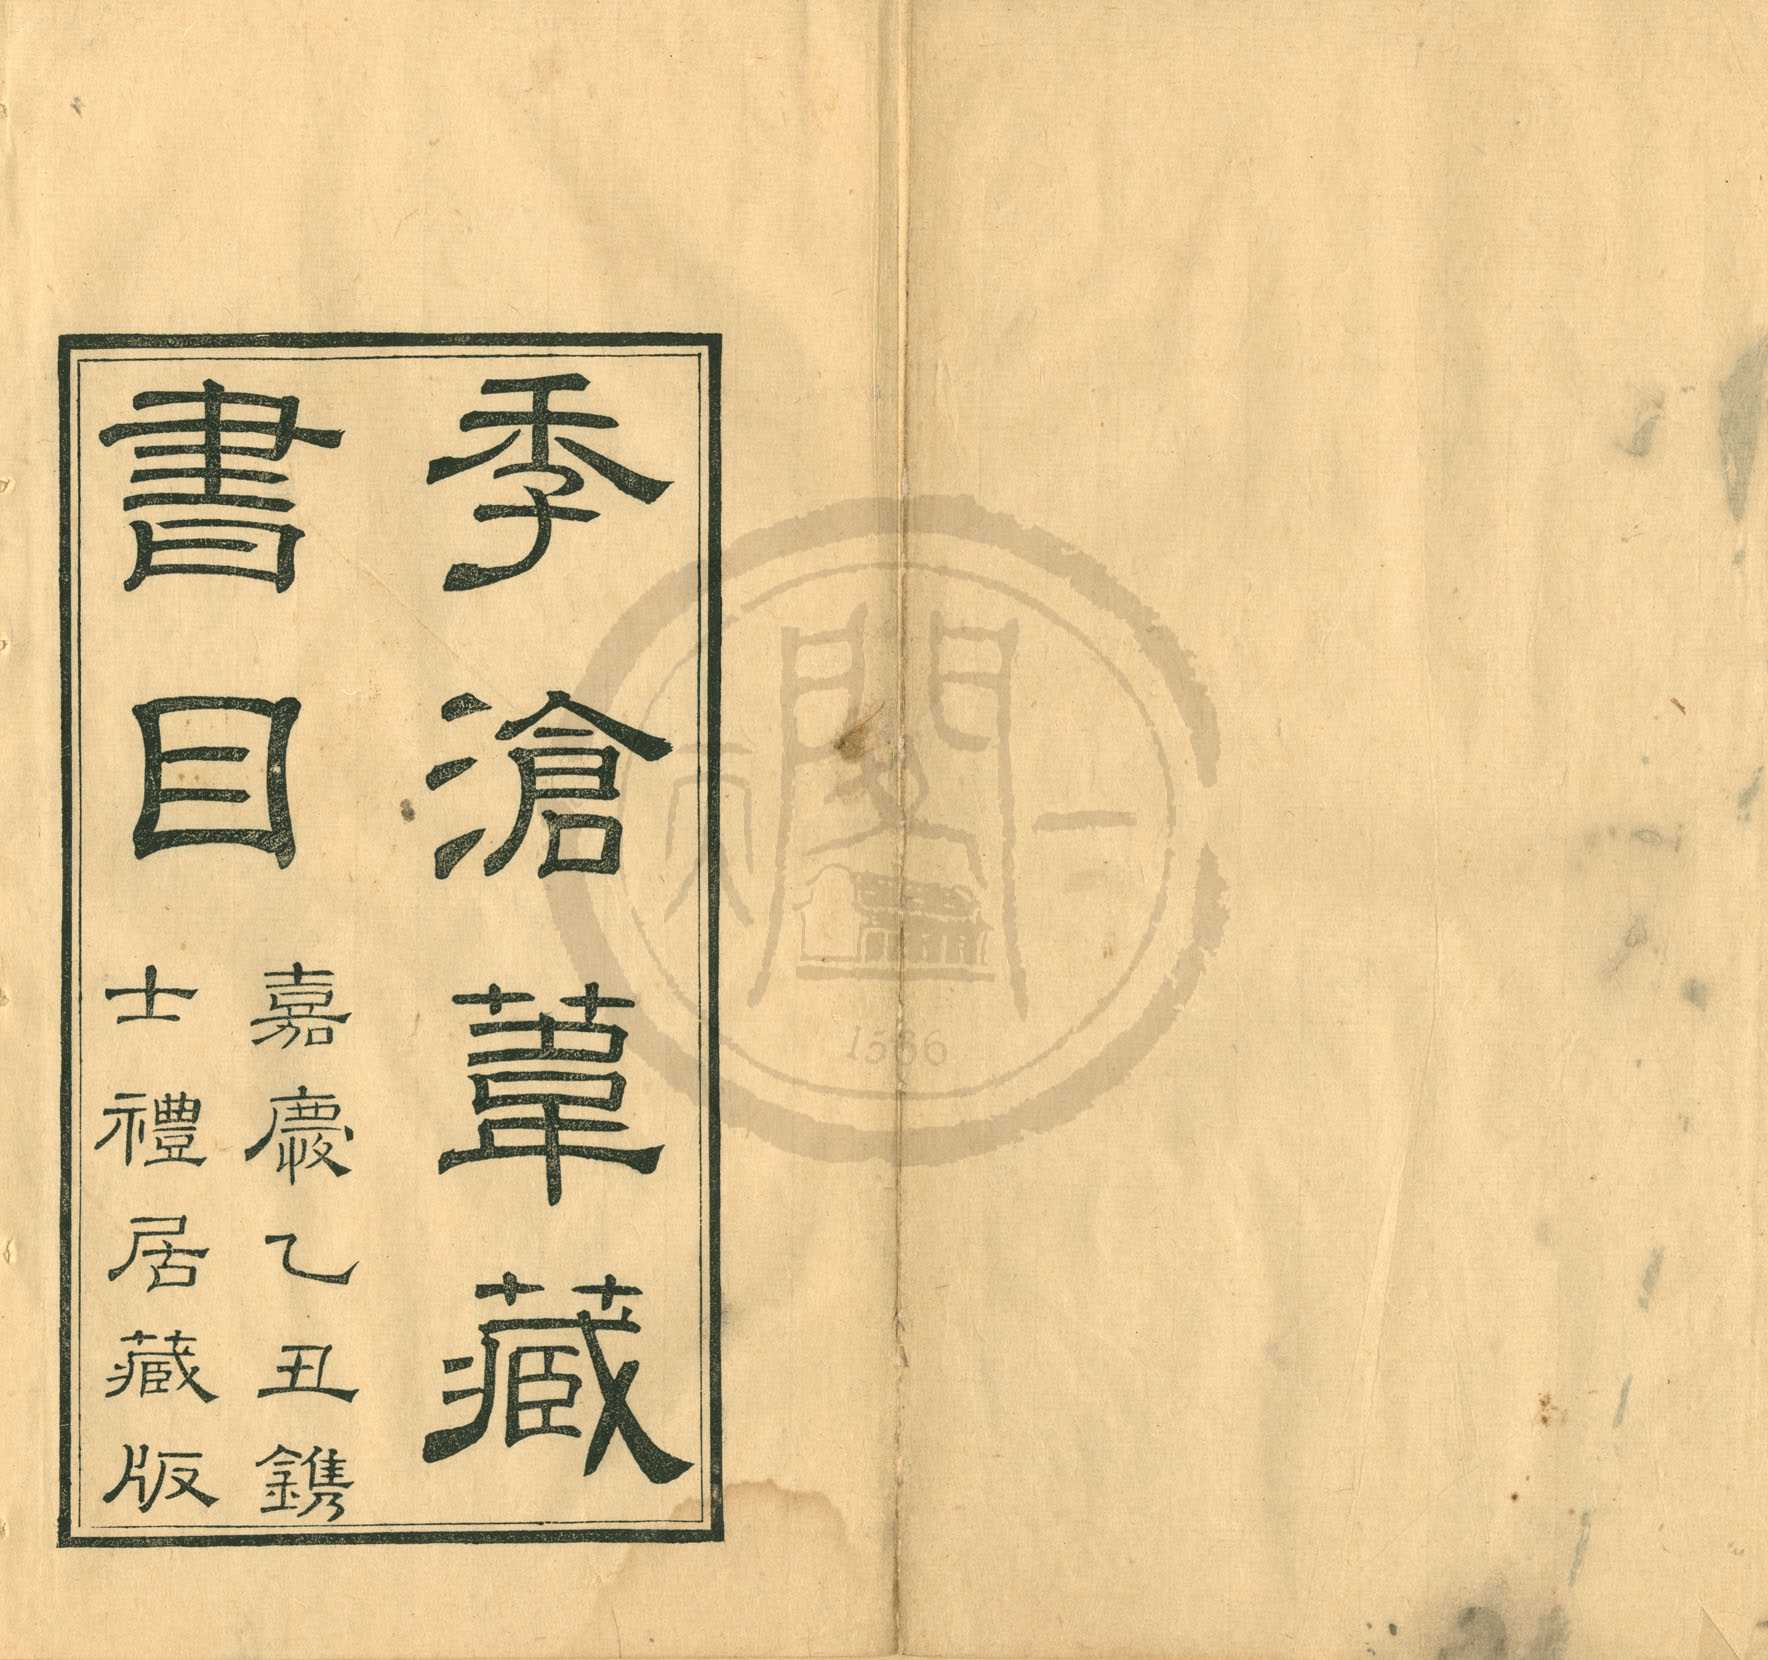 季滄葦藏
書目
嘉慶乙丑鐫
士禮居藏版
天一閣
1566